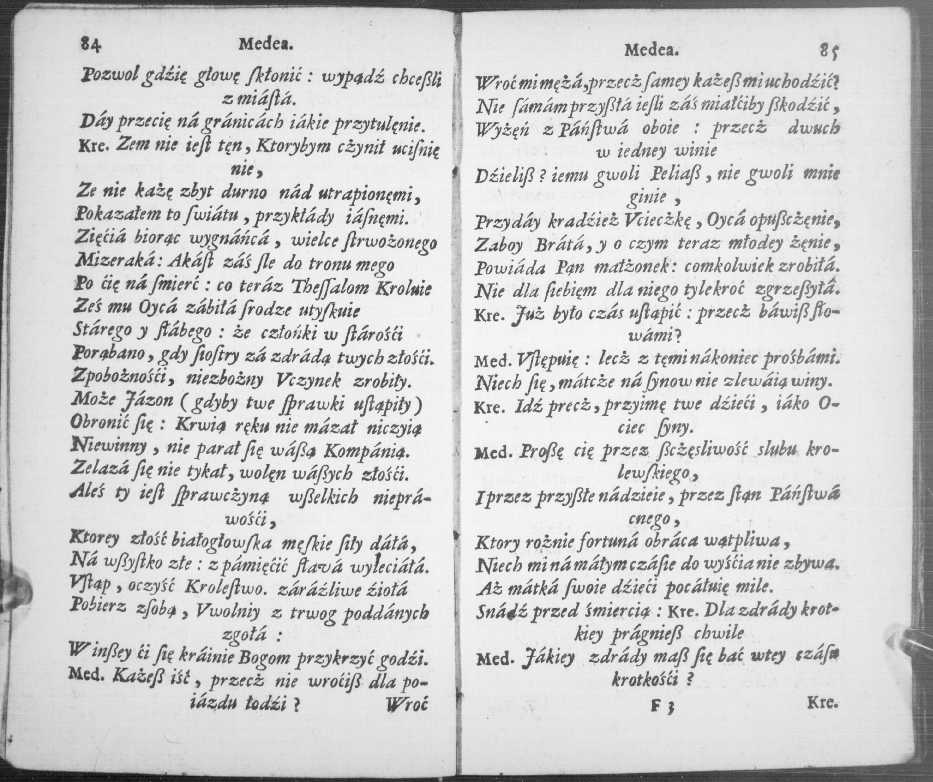 84 Medea.
Pozwol gdźię głowę ſkłonić : wypądź chceßli
z miáſtá.
Dáy przecię ná gránicách iákie przytulęnie.
Kre. Zem nie ieſt tęn, Ktorybym cżynił uciſnię
nie,
Ze nie każę zbyt durno nád utrapionęmi,
Pokazałem to ſwiátu, przykłády iáſnęmi.
Zięćiá biorąc wygnáńcá, wielce ſtrwożonego
Mizeraká: Akáſt záś ſle do tronu mego
Po ćię ná ſmierć : co teráz Theſſalom Kroluie
Ześ mu Oycá zábiłá ſrodze utyſkuie
Stárego y ſłábego : że człońki w ſtárośći
Porąbano, gdy ſioſtry zá zdrádą twych złośći.
Zpobożnośći, niezbożny Vczynek zrobiły.
Może Jázon (gdyby twe ſprawki uſtąpiły)
Obronić ſię : Krwią ręku nie mázał niczyią
Niewinny, nie parał ſię wáßą Kompánią.
Zelazá ſię nie tykał, wolęn wáßych złośći.
Aleś ty ieſt ſprawcżyną wßelkich nieprá-
wośći,
Ktorey złość białogłowſka męſkie ſiły dáłá,
Ná wſzyſtko złe : z pámięćić ſławá wyleciáłá.
Vſtąp, oczyść Kroleſtwo. záráźliwe źiołá
Pobierz zſobą, Vwolniy z trwog poddánych
zgołá :
W inßey ći ſię kráinie Bogom przykrzyć godźi.
Med. Każeß iść, przecż nie wroćiß dla po-
iázdu łodźi ? Wroć
Medea. 85
Wroć mi mężá, przecż ſamey każeß mi uchodźić?
Nie ſámám przyßłá ieſli záś miałćiby ßkodźić,
Wyżęń z Páńſtwá oboie : przecż dwuch
w iedney winie
Dźieliß? iemu gwoli Peliaß, nie gwoli mnie
ginie,
Przydáy kradźież Vcieczkę, Oycá opußcżęnie,
Zaboy Brátá, y o czym teraz młodey żęnie,
Powiáda Pąn małżonek: comkolwiek zrobiłá.
Nie dla ſiebięm dla niego tylekroć zgrzeßyłá.
Kre. Już było czás uſtąpić : przecż báwiß ſło-
wámi?
Med. Vſtępuię : lecż z tęmi nákoniec prośbámi.
Niech ſię, mátcże ná ſynow nie zlewáią winy.
Kre. Idź precż, przyimę twe dźieći, iáko O-
ciec ſyny.
Med. Proßę cię przez ßcżęsliwość slubu kro-
lewſkiego,
I przez przyßłe nádzieie, przez ſtąn Páńſtwá
cnego,
Ktory rożnie fortuná obráca wątpliwa,
Niech mi ná máłym czáſie do wyśćia nie zbywa.
Aż mátká ſwoie dźieći pocáłuię mile.
Snádź przed śmiercią : Kre. Dla zdrády krot-
kiey prágnieß chwile
Med. Jákiey zdrády maß ſię bać wtey czáſu
krotkośći ?
F 3 Kre.